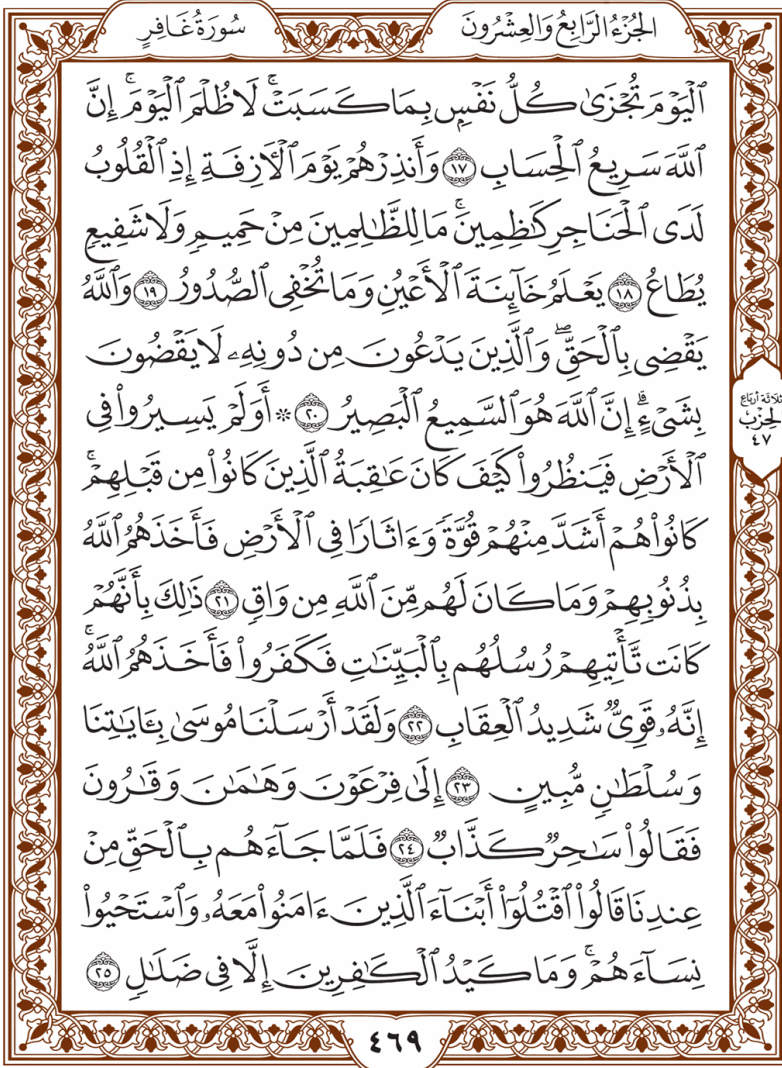 سُورَةُ غَافِرٍ
الجُزْءُ الرَّابِعُ وَالعِشْرُونَ
ٱلۡيَوۡمَ تُجۡزَىٰ كُلُّ نَفۡسِۭ بِمَا كَسَبَتۡۚ لَا ظُلۡمَ ٱلۡيَوۡمَۚ إِنَّ
ٱللَّهَ سَرِيعُ ٱلۡحِسَابِ ١٧ وَأَنذِرۡهُمۡ يَوۡمَ ٱلۡأٓزِفَةِ إِذِ ٱلۡقُلُوبُ
لَدَى ٱلۡحَنَاجِرِ كَٰظِمِينَۚ مَا لِلظَّٰلِمِينَ مِنۡ حَمِيمٖ وَلَا شَفِيعٖ
يُطَاعُ ١٨ يَعۡلَمُ خَآئِنَةَ ٱلۡأَعۡيُنِ وَمَا تُخۡفِي ٱلصُّدُورُ ١٩ وَٱللَّهُ
يَقۡضِي بِٱلۡحَقِّۖ وَٱلَّذِينَ يَدۡعُونَ مِن دُونِهِۦ لَا يَقۡضُونَ
بِشَيۡءٍۗ إِنَّ ٱللَّهَ هُوَ ٱلسَّمِيعُ ٱلۡبَصِيرُ ٢٠ ۞ أَوَلَمۡ يَسِيرُواْ فِي
ٱلۡأَرۡضِ فَيَنظُرُواْ كَيۡفَ كَانَ عَٰقِبَةُ ٱلَّذِينَ كَانُواْ مِن قَبۡلِهِمۡۚ
كَانُواْ هُمۡ أَشَدَّ مِنۡهُمۡ قُوَّةٗ وَءَاثَارٗا فِي ٱلۡأَرۡضِ فَأَخَذَهُمُ ٱللَّهُ
بِذُنُوبِهِمۡ وَمَا كَانَ لَهُم مِّنَ ٱللَّهِ مِن وَاقٖ ٢١ ذَٰلِكَ بِأَنَّهُمۡ
كَانَت تَّأۡتِيهِمۡ رُسُلُهُم بِٱلۡبَيِّنَٰتِ فَكَفَرُواْ فَأَخَذَهُمُ ٱللَّهُۚ
إِنَّهُۥ قَوِيّٞ شَدِيدُ ٱلۡعِقَابِ ٢٢ وَلَقَدۡ أَرۡسَلۡنَا مُوسَىٰ بِـَٔايَٰتِنَا
وَسُلۡطَٰنٖ مُّبِينٍ ٢٣ إِلَىٰ فِرۡعَوۡنَ وَهَٰمَٰنَ وَقَٰرُونَ
فَقَالُواْ سَٰحِرٞ كَذَّابٞ ٢٤ فَلَمَّا جَآءَهُم بِٱلۡحَقِّ مِنۡ
عِندِنَا قَالُواْ ٱقۡتُلُوٓاْ أَبۡنَآءَ ٱلَّذِينَ ءَامَنُواْ مَعَهُۥ وَٱسۡتَحۡيُواْ
نِسَآءَهُمۡۚ وَمَا كَيۡدُ ٱلۡكَٰفِرِينَ إِلَّا فِي ضَلَٰلٖ ٢٥
ثلاثة أرباع
الحزب
٤٧
٤٦٩